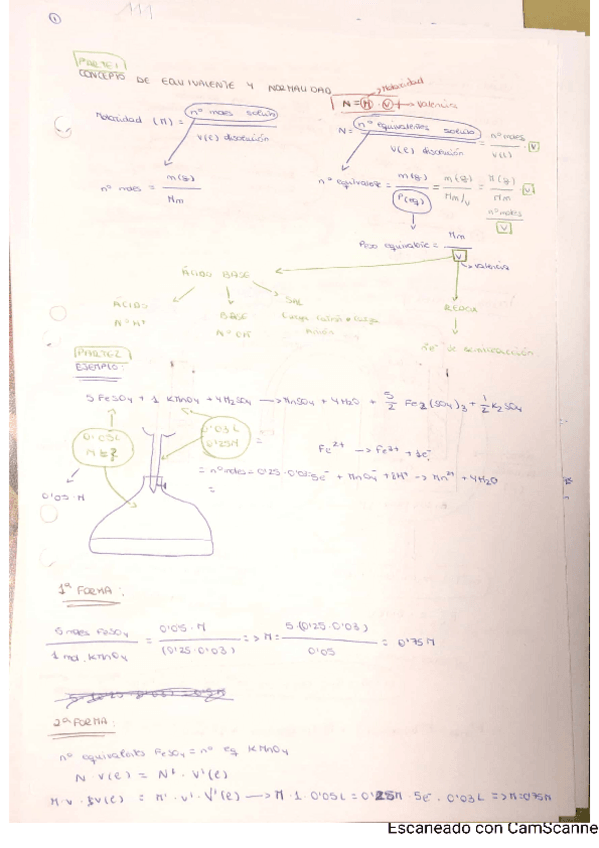 1
111
PARTE 1
CONCEPTO DE EQUIVALENTE Y NORMALIDAD
Molaridad
N = M · V → Valencia
Molaridad (M) = nº moles soluto / V(l) disolución
N = nº equivalentes soluto / V(l) disolución = nº moles / V(l) · V
nº moles = m(g) / Mm
nº equivalente = m(g) / P(eq) = m(g) / Mm/v = M(g) / Mm · V
nº moles / V
Peso equivalente = Mm / V
→ valencia
ÁCIDO BASE
ÁCIDO
Nº H⁺
BASE
Nº OH⁻
SAL
REDOX
nº e⁻ de semirreacción
PARTE 2
EJEMPLO:
5 FeSO4 + 1 KMnO4 + 4H2SO4 → MnSO4 + 4H2O + 5/2 Fe2(SO4)3 + 1/2 K2SO4
0'05L
M = ?
0'03L
0'25M
=
0'05·M
Fe²⁺ → Fe³⁺ + 1e⁻
= nº moles = 0'25·0'03
5e⁻ + MnO4⁻ + 8H⁺ → Mn²⁺ + 4H2O
=
1ª FORMA:
5 moles FeSO4 / 1 mol KMnO4 = 0'05·M / (0'25·0'03) => M = 5·(0'25·0'03) / 0'05 = 0'75M
2ª FORMA:
nº equivalentes FeSO4 = nº eq KMnO4
N · V(l) = N' · V'(l)
M·v·V(l) = M'·v'·V'(l) → M·1·0'05L = 0'25M·5e⁻·0'03L => M=0'75M
Escaneado con CamScanne